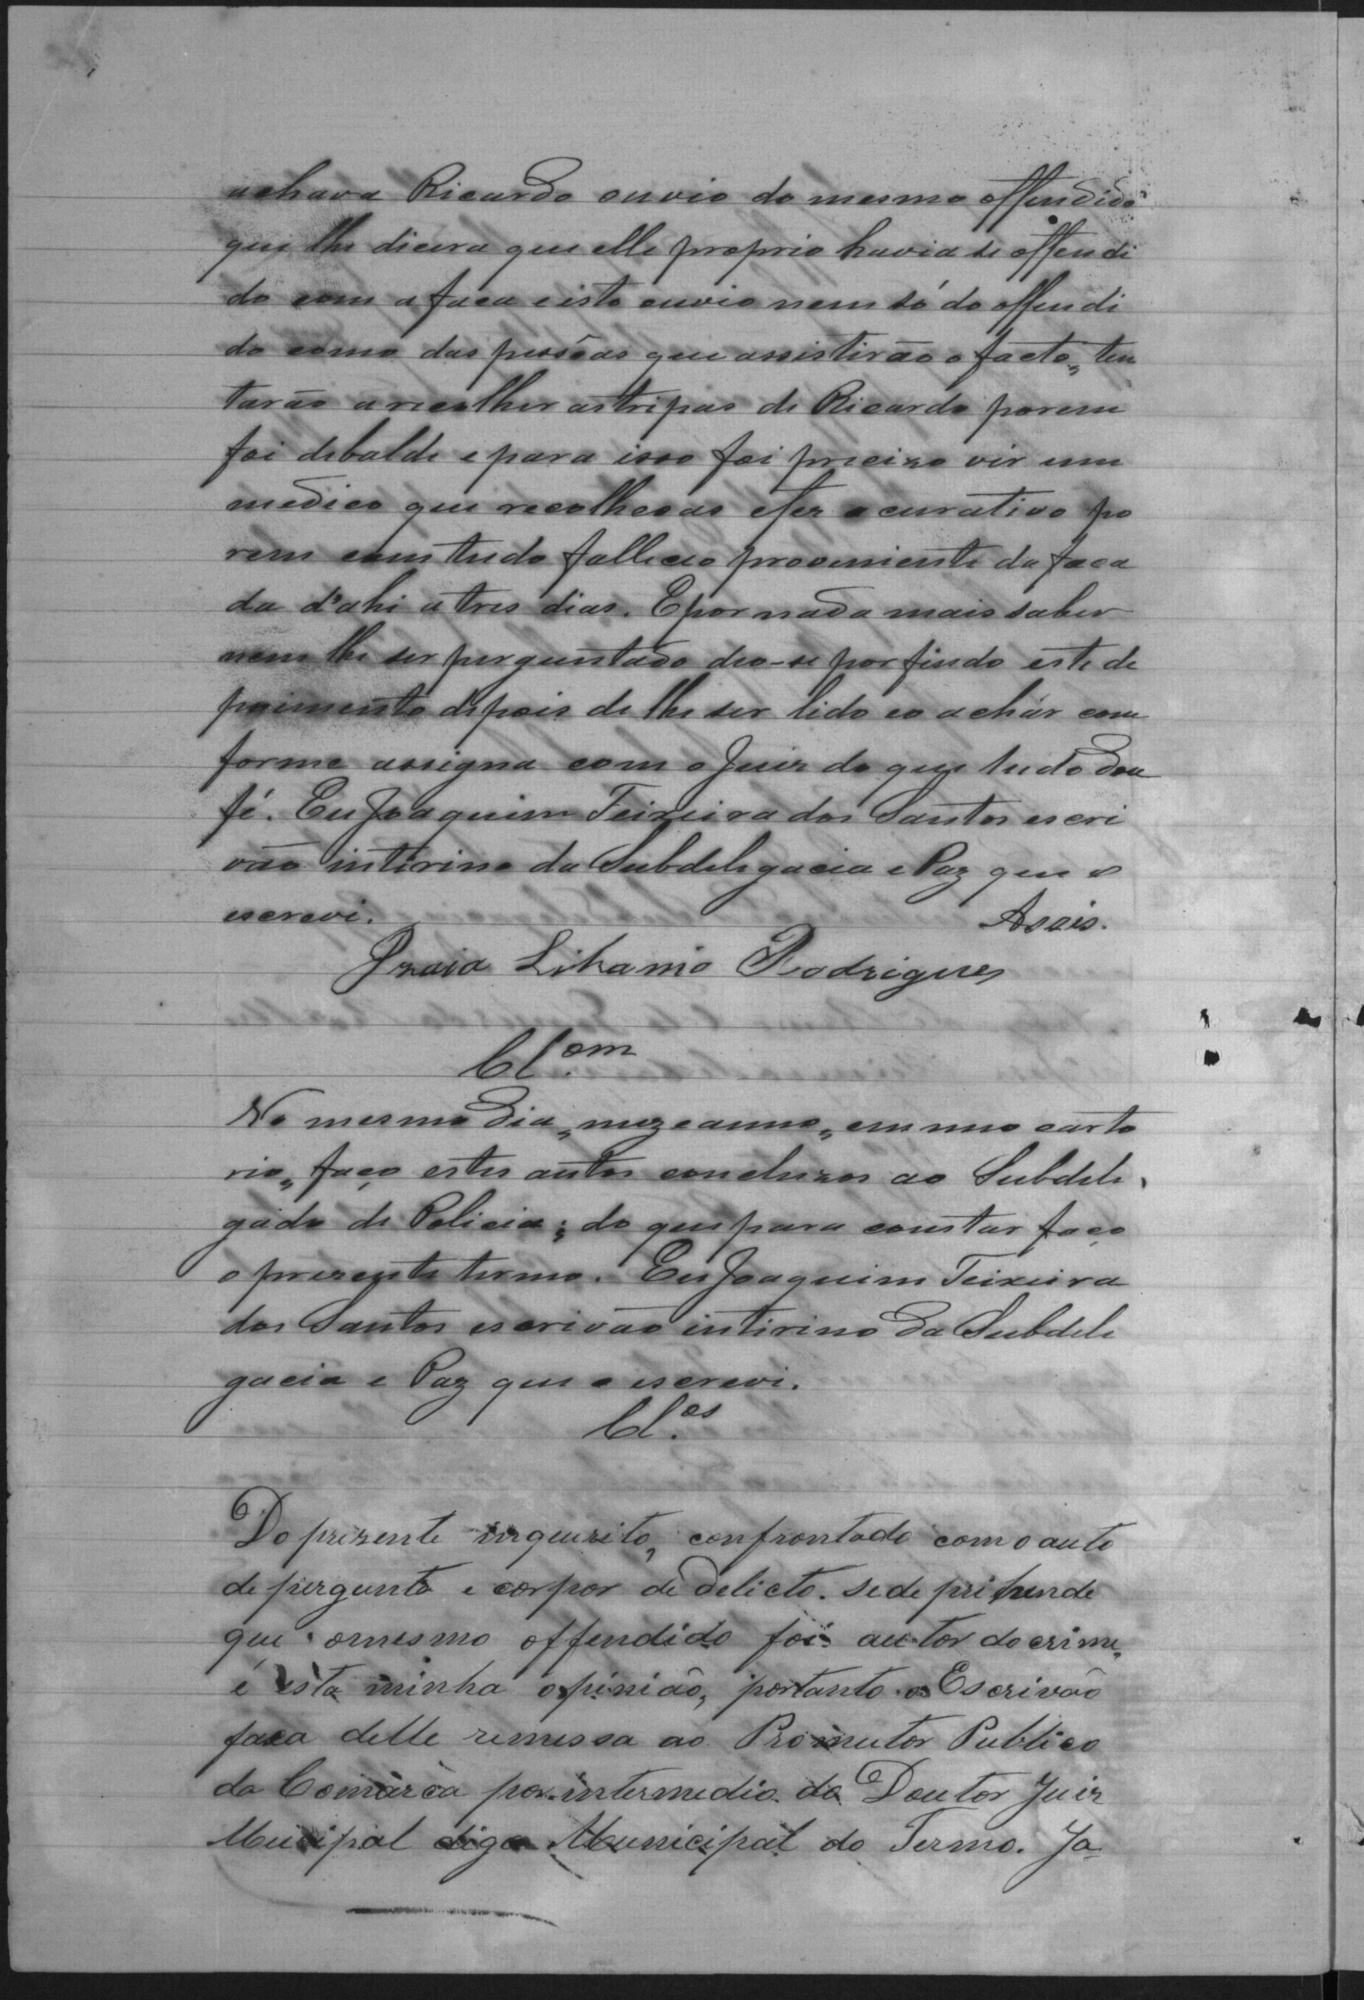 achava Ricardo ouvio do mesmo offendido
que lhe dicera que elle proprio havia se offendi
do com a faca e isto ouvio nem só do offendi
do como das pessôas que assistirão o facto, ten
tarão a recolher as tripas de Ricardo porem
foi debalde e para isso foi precizo vir um
medico que recolheo as e fez o curativo po
rem com tudo falleceo proveniente da faca
da d'ahi a tres dias. E por nada mais saber
nem lhe ser perguntado deo-se por findo este de
poimento depois de lhe ser lido e o achár con
forme assigna com o Juiz do que tudo dou
fé. Eu Joaquim Teixeira dos Santos escri
vão intirino da Subdelegacia e Paz que o
escrevi. Assis.
Libanio Rodrigues
Cl.om
No mesmo dia, mez e anno, em meo carto
rio, faço estes autos concluzos ao Subdele
gado de Policia; do que para constar faço
o prezente termo. Eu Joaquim Teixeira
dos Santos escrivão intirino da Subdele
gacia e Paz que o escrevi.
Cl.os
Do prezente inquerito, confrontado com o auto
de pergunta e corpor de delicto. se deprihende
que o mesmo offendido foi autor do crime,
é esta minha opinião, portanto o Escrivão
faca delle remessa ao Promutor Publico
da Comarca por intermedio do Doutor Juiz
Mucipal digo Municipal do Termo. Ja